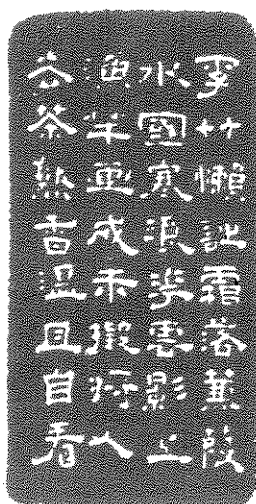 李竹懶詩霜落蒹葭
水國寒浪花雲影上
漁竿畫成未擬將人
去茶熟香溫且自看